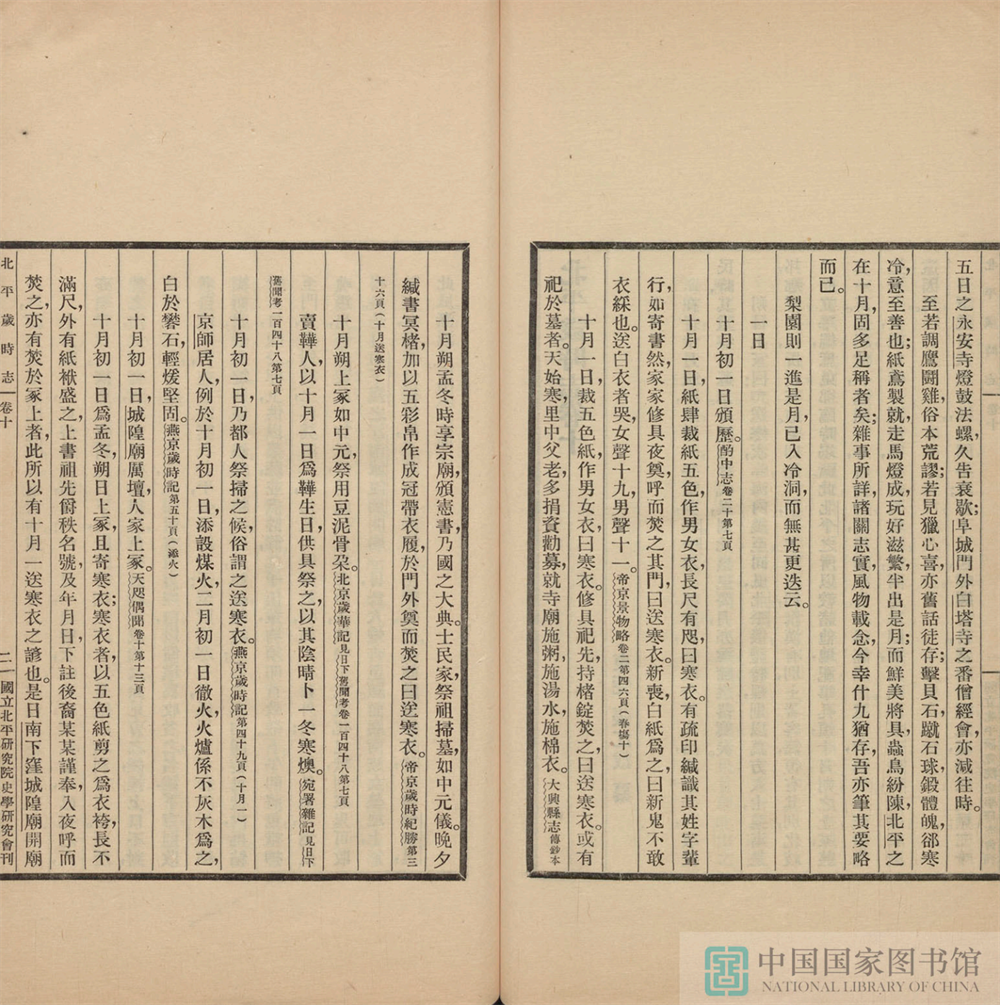 五日之永安寺燈鼓法螺,久吿衰歇;阜城門外白塔寺之番僧經會,亦減往時。
至若調鷹鬭雞,俗本荒謬;若見獵心喜,亦舊話徒存;擊貝石,蹴石球,鍛體魄,郤寒
冷,意至善也;紙鳶製就,走馬燈成,玩好滋繁,半出是月;而鮮美將具,蟲鳥紛陳,北平之
在十月,固多足稱者矣;雜事所詳,諸關志實,風物載念,今幸什九猶存,吾亦筆其要略
而已。
梨園則一進是月,已入冷洞,而無甚更迭云。
一日
十月初一日頒歷。酌中志卷二十第七頁
十月一日,紙肆裁紙五色,作男女衣,長尺有咫,曰寒衣,有疏印緘,識其姓字輩
行,如寄書然,家家修具夜奠,呼而焚之其門,曰送寒衣。新喪,白紙爲之,曰新鬼不敢
衣綵也。送白衣者哭,女聲十九,男聲十一。帝京景物略卷二第四六頁(春塲十)
十月一日,裁五色紙作男女衣,曰寒衣,修具祀先,持楮錠焚之,曰送寒衣,或有
祀於墓者。天始寒,里中父老,多捐資勸募,就寺廟施粥,施湯水,施棉衣。大興縣志傳鈔本
十月朔,孟冬時享宗廟,頒憲書,乃國之大典。士民家祭祖掃墓,如中元儀。晚夕
緘書冥楮,加以五彩帛作成冠帶衣履,於門外奠而焚之,曰送寒衣。帝京歲時紀勝第三
十六頁(十月送寒衣)
十月朔上冢,如中元,祭用豆泥骨朶。北京歲華記見日下舊聞考卷一百四十八第七頁
賣鞾人以十月一日爲鞾生日,供具祭之,以其陰晴,卜一冬寒燠。宛署雜記見日下
舊聞考一百四十八第七頁
十月初一日,乃都人祭掃之候,俗謂之送寒衣。燕京歲時記第四十九頁(十月一)
京師居人,例於十月初一日,添設煤火,二月初一日徹火,火爐係不灰木爲之,
白於礬石,輕煖堅固。燕京歲時記第五十頁(添火)
十月初一日,城隍廟厲壇,人家上冢。天咫偶聞卷十第十三頁
十月初一日爲孟冬朔日,上冢,且寄寒衣;寒衣者,以五色紙剪之爲衣袴,長不
滿尺,外有紙袱盛之,上書祖先爵秩名號,及年月日,下註後裔某某謹奉,入夜呼而
焚之,亦有焚於冢上者,此所以有十月一送寒衣之諺也。是日南下窪城隍廟開廟
北平歲時志 卷十 二 國立北平硏究院史學硏究會刊
中国国家图书馆
NATIONAL LIBRARY OF CHINA